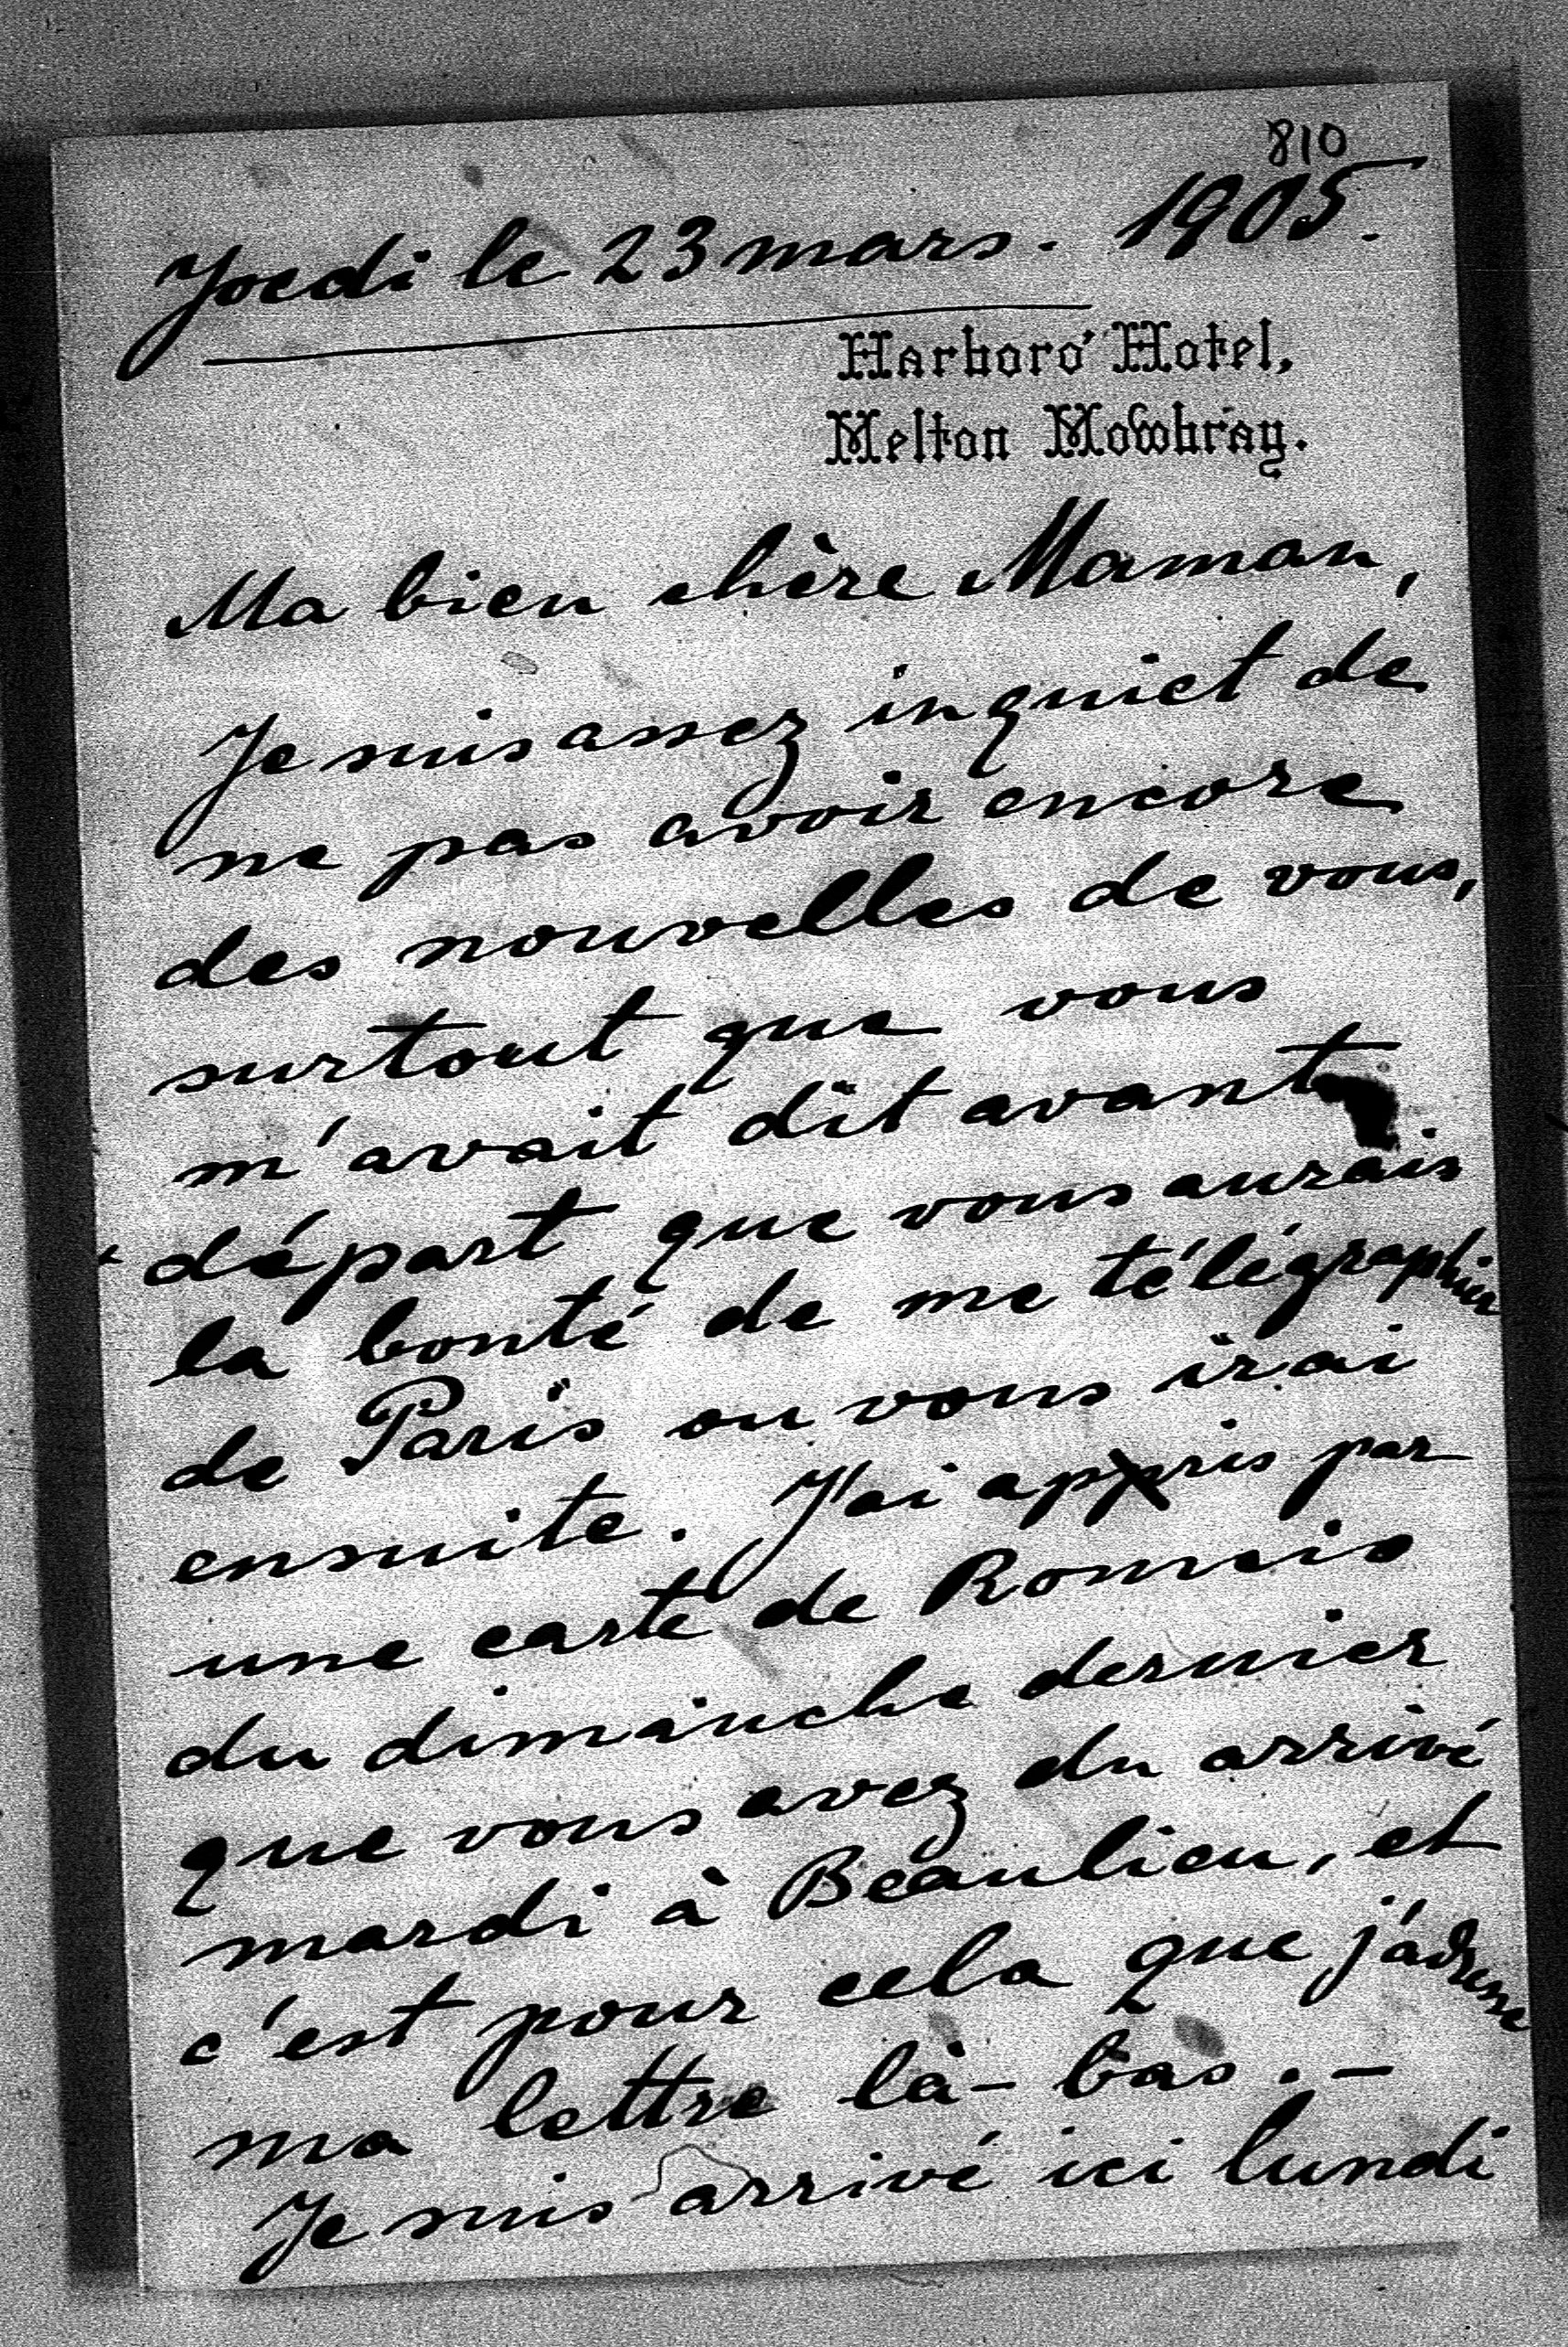 810
Joedi le 23 mars. 1905.
Harboro' Hotel,
Melton Mowbray.
Ma bien chère Maman,
Je suis assez inquiet de
ne pas avoir encore
des nouvelles de vous,
surtout que vous
m'avait dit avant
départ que vous aurais
la bonté de me télégraphier
de Paris ou vous irai
ensuite. J'ai appris par
une carte de
du dimanche dernier
que vous avez du arrivé
mardi à Beaulieu, et
c'est pour cela que j'adresse
ma lettre là-bas. -
Je suis arrivé ici lundi